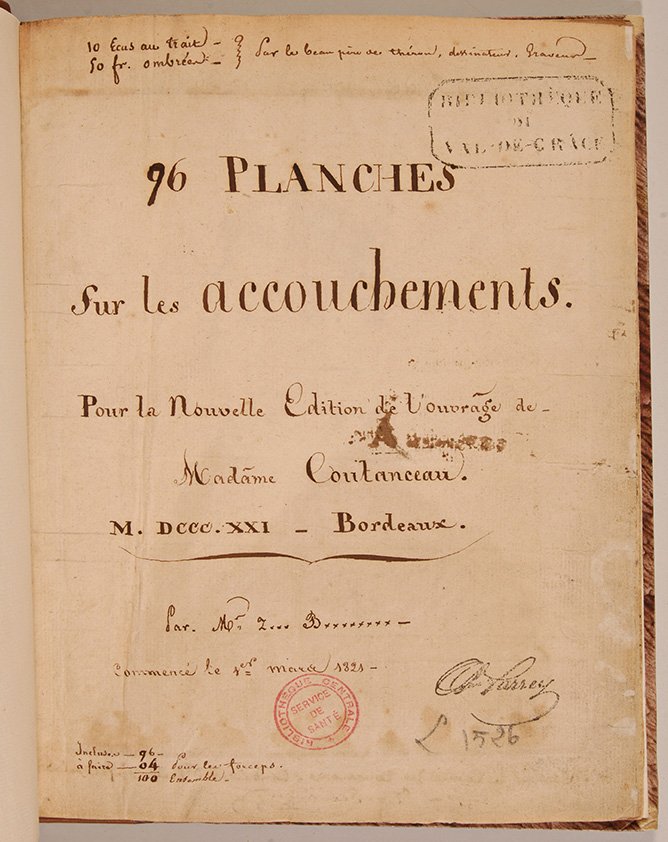 10 Ecus au trait -
50 fr. ombrées -
Par le beau père de théron, dessinateur, Graveur -
BIBLIOTHÈQUE
DU
VAL-DE-GRÂCE
96 PLANCHES
Sur les accouchements.
Pour la Nouvelle Edition de l'ouvrage de -
Madame Coutanceau.
M. DCCC.XXI - Bordeaux.
Par. Mr.
Commencé le 1er mars 1821 -
Larrey
BIBLIOTHÈQUE CENTRALE
SERVICE
DE
SANTÉ
L 1526
Inclus - 96 -
à faire - 04 Pour les forceps.
100 Ensemble.